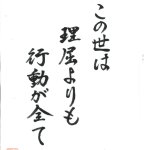 この世は
理屈よりも
行動が全て